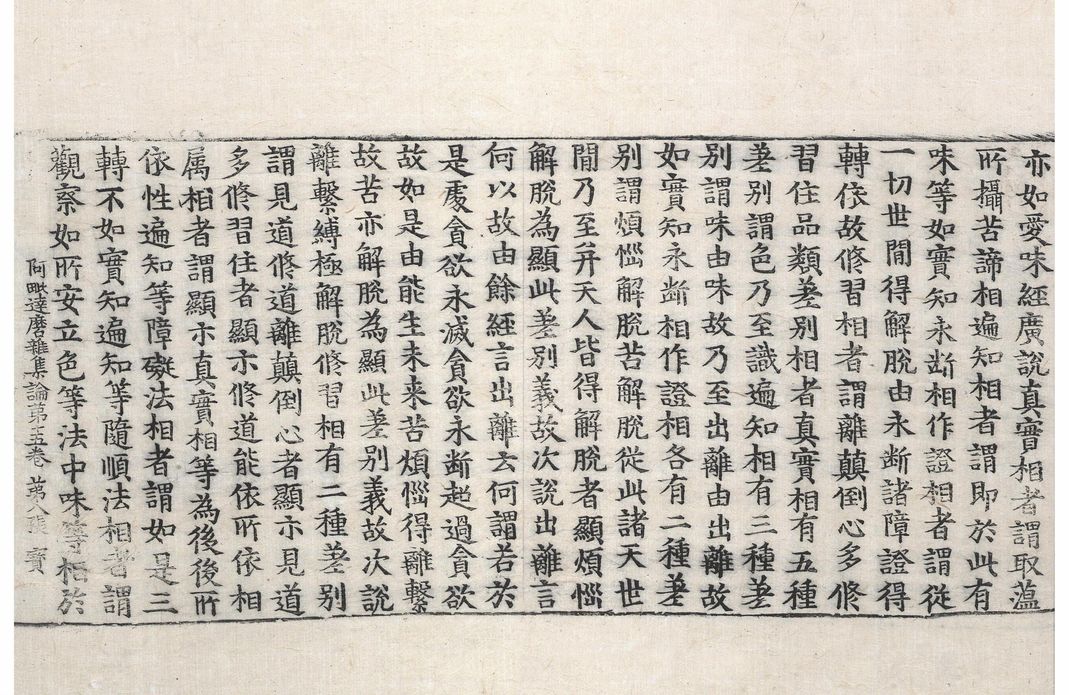 亦如愛味經廣說真實相者謂取蘊
所攝苦諦相遍知相者謂即於此有
味等如實知永断相作證相者謂從
一切世間得解脫由永断諸障證得
轉依故修習相者謂離顛倒心多修
習住品類差別相者真實相有五種
差別謂色乃至識遍知相有三種差
別謂味由味故乃至出離由出離故
如實知永断相作證相各有二種差
別謂煩惱解脫苦解脫從此諸天世
間乃至并天人皆得解脫者顯煩惱
解脫為顯此差別義故次說出離言
何以故由餘經言出離云何謂若於
是處貪欲永滅貪欲永断超過貪欲
故如是由能生未来苦煩惱得離繫
故苦亦解脫為顯此差別義故次說
離繫縛極解脫修習相有二種差別
謂見道修道離顛倒心者顯示見道
多修習住者顯示修道能依所依相
属相者謂顯示真實相等為後後所
依性遍知等障礙法相者謂如是三
轉不如實知遍知等隨順法相者謂
觀察如所安立色等法中味等相於
阿毗達磨雜集論第五卷 第八張 寶